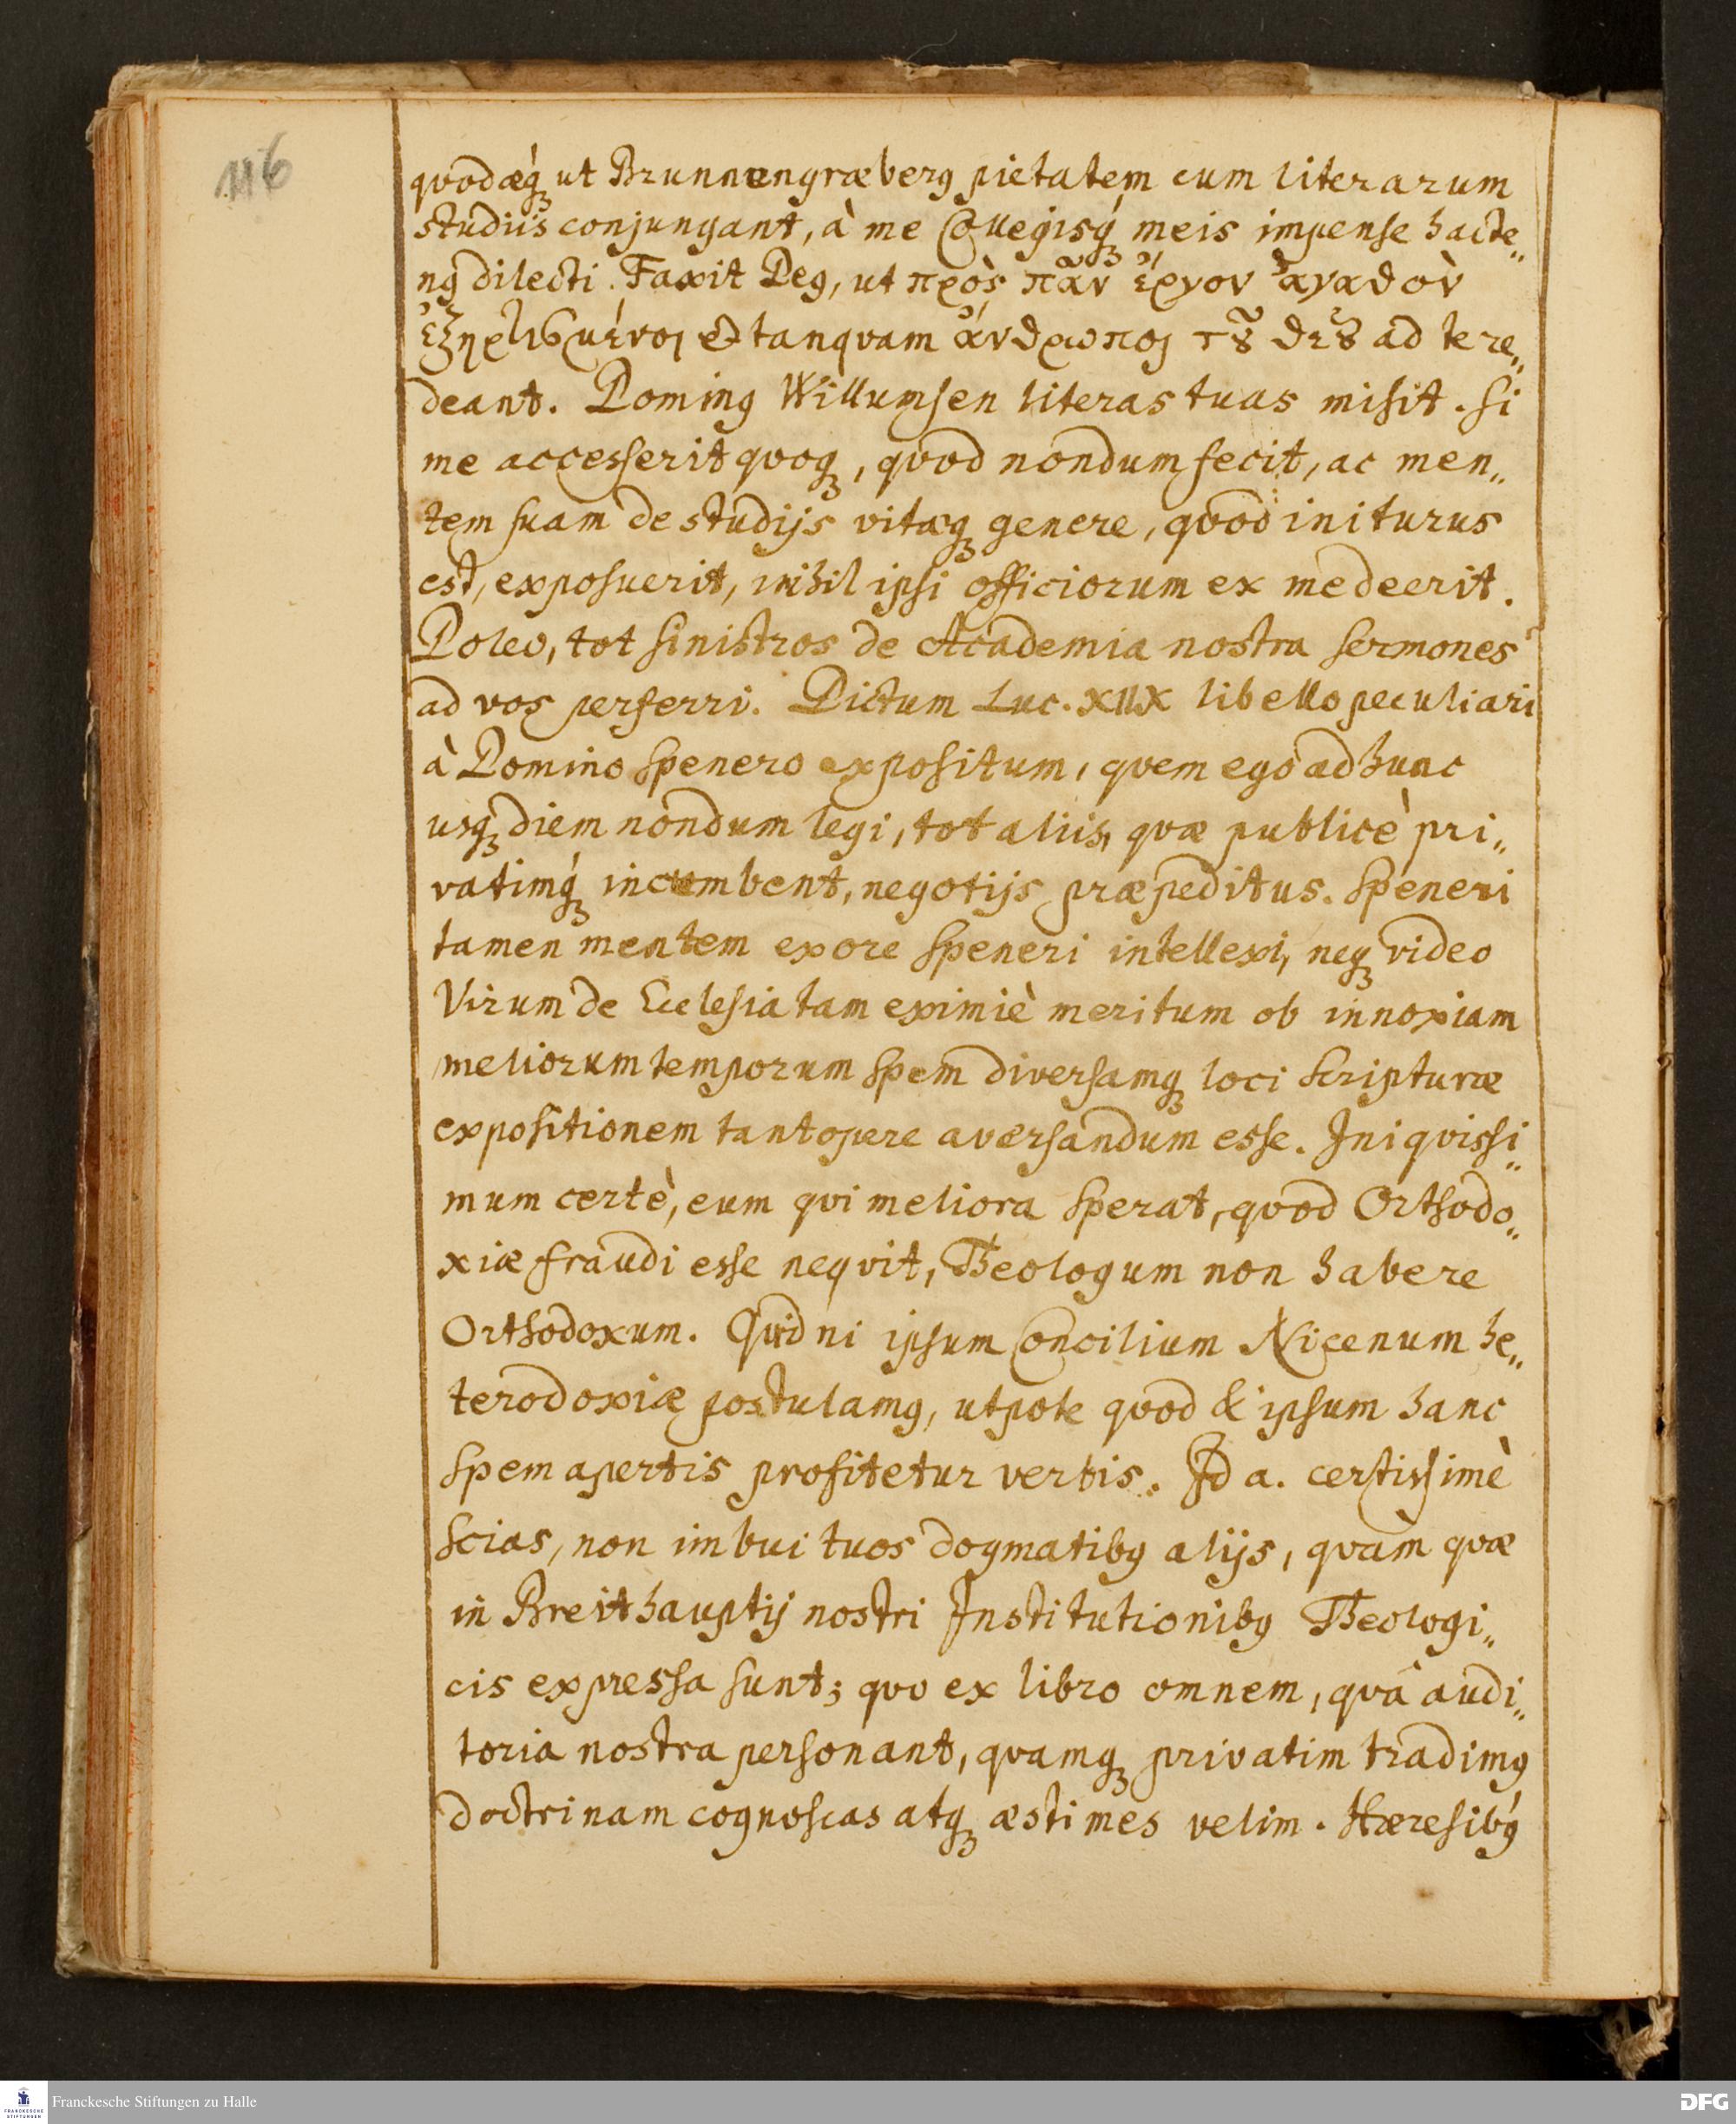 116
qvodæq́ꝫ ut Brunnengræberg pietatem cum literarum
studiis conjungant, à me Collegisq́ꝫ meis impense hacte„
nꝰ dilecti. Faxit Deꝰ, ut πρὸς πᾶν ἔργον ἀγαθὸν
ἐξηρτισμένοι et tanqvam ἄνθρωποι τȣ͂ θεȣ͂ ad te re„
deant. Dominꝰ Willumsen literas tuas misit. Si
me accesserit qvoqꝫ, qvod nondum fecit, ac men„
tem suam de studijs vitæqꝫ genere, qvod initurus
est, exposuerit, nihil ipsi officiorum ex me deerit.
Doleo, tot sinistros de Academia nostra sermones
ad vos perferri. Dictum Luc. XIIX libello peculiari
à Domino Spenero expositum, qvem ego ad hunc
usq́ꝫ diem nondum legi, tot aliis, qvæ publicè pri„
vatimq́ꝫ incumbent, negotijs præpeditus. Speneri
tamen mentem ex ore Speneri intellexi, neqꝫ video
Virum de Ecclesia tam eximiè meritum ob innoxiam
meliorum temporum spem diversamqꝫ loci Scripturæ
expositionem tantopere aversandum esse. Iniqvissi„
mum certè, eum qvi meliora sperat, qvod Orthodo„
xiæ fraudi esse neqvit, Theologum non habere
Orthodoxum. Qvid ni ipsum Concilium Nicenum he„
terodoxiæ postulamꝰ, utpote qvod & ipsum hanc
spem apertis profitetur verbis. Id a. certissimè
scias, non imbui tuos dogmatibꝰ alijs, qvàm qvæ
in Breithauptij nostri Institutionibꝰ Theologi„
cis expressa sunt; qvo ex libro omnem, qvâ audi„
toria nostra personant, qvamqꝫ privatim tradimꝰ
doctrinam cognoscas atqꝫ æstimes velim. Hæresibꝰ
Franckesche Stiftungen zu Halle
FRANCKESCHE
STIFTUNGEN
DFG